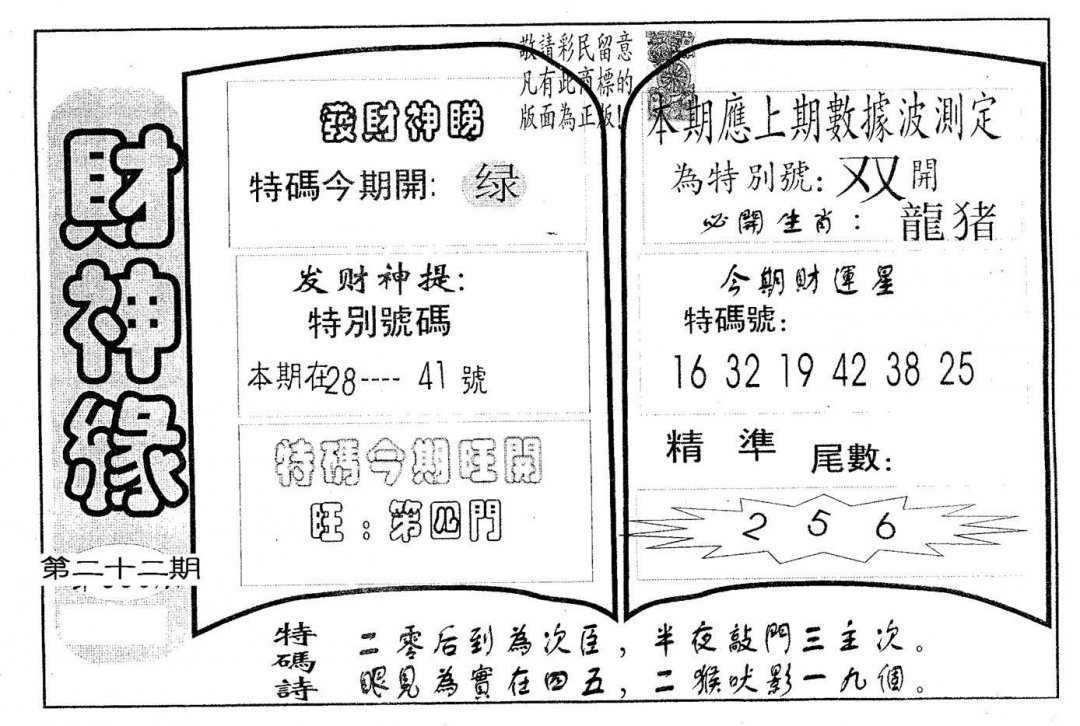 財神緣
第二十二期
敬請彩民留意
凡有此商標的
版面為正版!
發財神睇
特碼今期開: 绿
发财神提:
特別號碼
本期在28---- 41 號
特碼今期旺開
旺:第四門
本期應上期數據波測定
為特別號: 双 開
必開生肖: 龍猪
今期財運星
特碼號:
16 32 19 42 38 25
精 準 尾數:
2 5 6
特碼詩
二零后到為次臣,半夜敲門三主次。
眼見為實在四五,二猴吠影一九個。